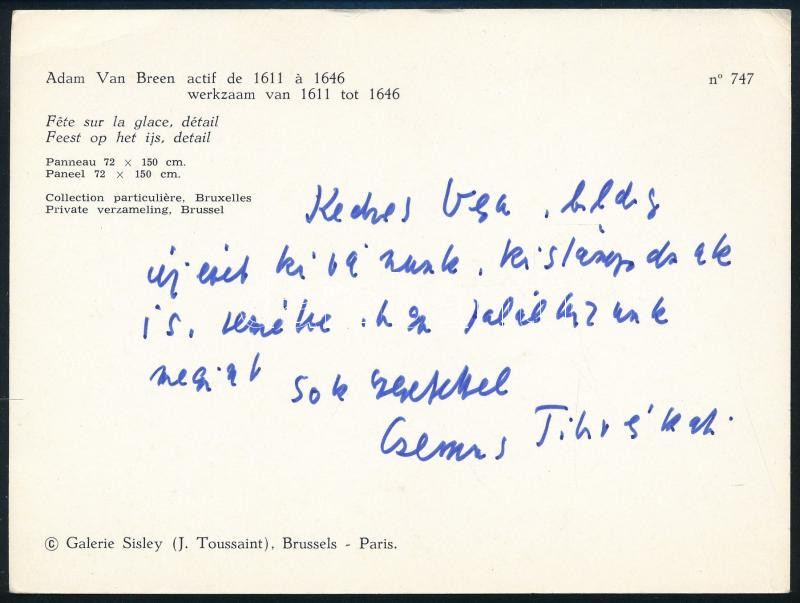 Adam Van Breen actif de 1611 à 1646
werkzaam van 1611 tot 1646
nº 747
Fête sur la glace, détail
Feest op het ijs, detail
Panneau 72 × 150 cm.
Paneel 72 × 150 cm.
Collection particulière, Bruxelles
Private verzameling, Brussel
Kedves Vera, boldog
új évet kívánunk, kislányodnak
is, remélve hogy találkozunk
megint sok szeretettel
Czernus Tibor
© Galerie Sisley (J. Toussaint), Brussels - Paris.